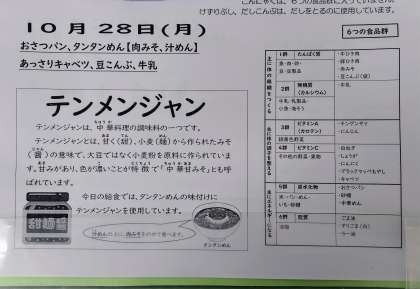 こんにゃくは、6つの食品群に入っていません。
けずりぶし、だしこんぶは、だしをとるのに使用しています。
10月28日(月)
おさつパン、タンタンめん【肉みそ、汁めん】
あっさりキャベツ、豆こんぶ、牛乳
テンメンジャン
テンメンジャンは、中華料理の調味料の一つです。
テンメンジャンとは、甘く(甜)、小麦(麺)から作られたみそ
(醤)の意味で、大豆ではなく小麦粉を原料に作られていま
す。甘みがあり、色が濃いことが特徴で「中華甘みそ」とも呼
ばれています。
今日の給食では、タンタンめんの味付けに
テンメンジャンを使用しています。
甜麺醤
汁めんの上に、肉みそをのせて食べます。
タンタンめん
6つの食品群
主に体の組織をつくる
1群 たんぱく質
魚・肉・卵・
豆・豆製品
・牛ひき肉
・豚ひき肉
・赤みそ
・豆こんぶ(袋)
2群 無機質
(カルシウム)
牛乳・乳製品
小魚・海そう
・牛乳
主に体の調子を整える
3群 ビタミンA
(カロテン)
緑黄色野菜
・チンゲンサイ
・にんじん
4群 ビタミンC
その他の野菜・果物
・白ねぎ
・しょうが
・にんにく
・ブラックマッペもやし
・キャベツ
主にエネルギーになる
5群 炭水化物
米・パン・めん
いも・砂糖
・おさつパン
・砂糖
・中華めん
6群 脂質
油脂
・ごま油
・すりごま(白)
・ラー油